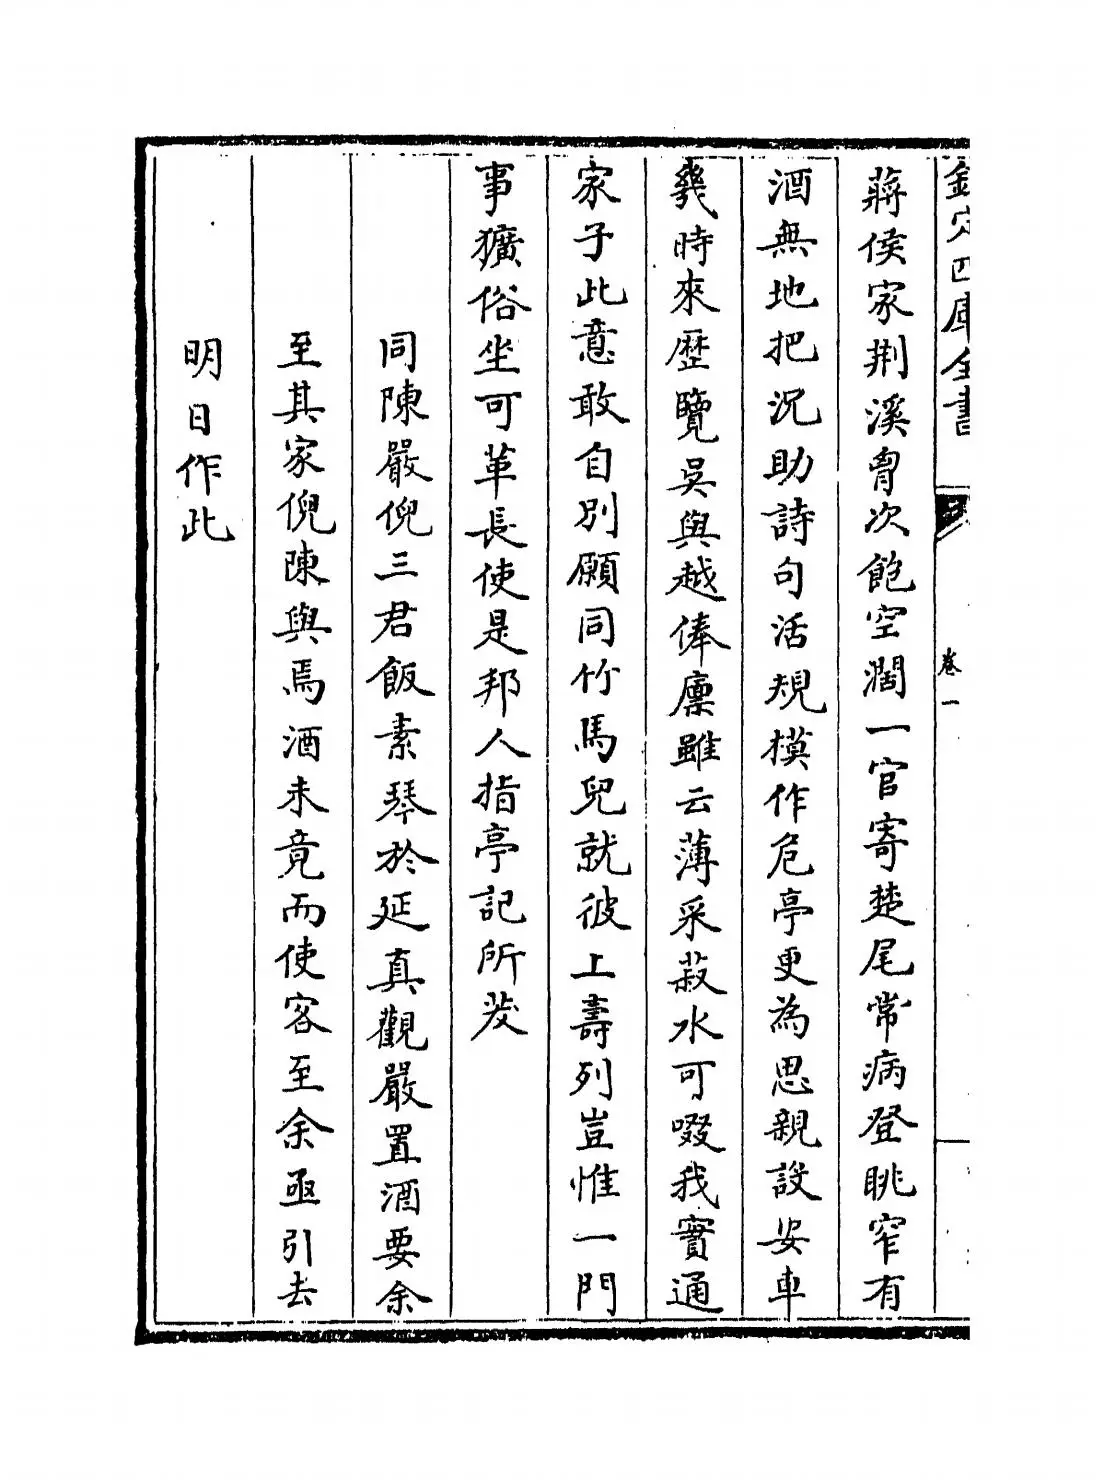 欽定四庫全書
卷一
蔣侯家荆溪胷次飽空濶一官寄楚尾常病登眺窄有
酒無地把况助詩句活規模作危亭更為思親設安車
幾時來歴覽吳與越俸廩雖云薄采菽水可啜我實通
家子此意敢自別願同竹馬兒就彼上壽列豈惟一門
事獷俗坐可革長使是邦人指亭記所茇
同陳嚴倪三君飯素琴於延真觀嚴置酒要余
至其家倪陳與焉酒未竟而使客至余亟引去
明日作此